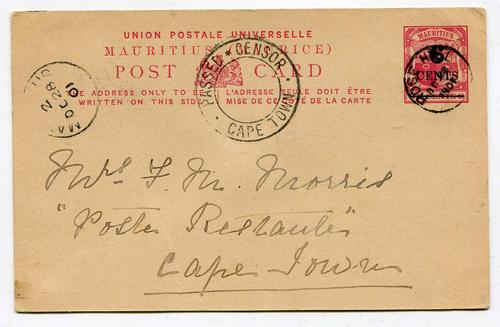 UNION POSTALE UNIVERSELLE
MAURITIUS (MAURICE)
POST CARD
THE ADDRESS ONLY TO BE
WRITTEN ON THIS SIDE
L'ADRESSE SEULE DOIT ÊTRE
MISE DE CE CÔTÉ DE LA CARTE
MAURITIUS
6
CENTS
PASSED * CENSOR
CAPE TOWN
2
OC 28
01
ROSE HILL
Mrs F. M. Morris
"Poste Restante"
Cape Town